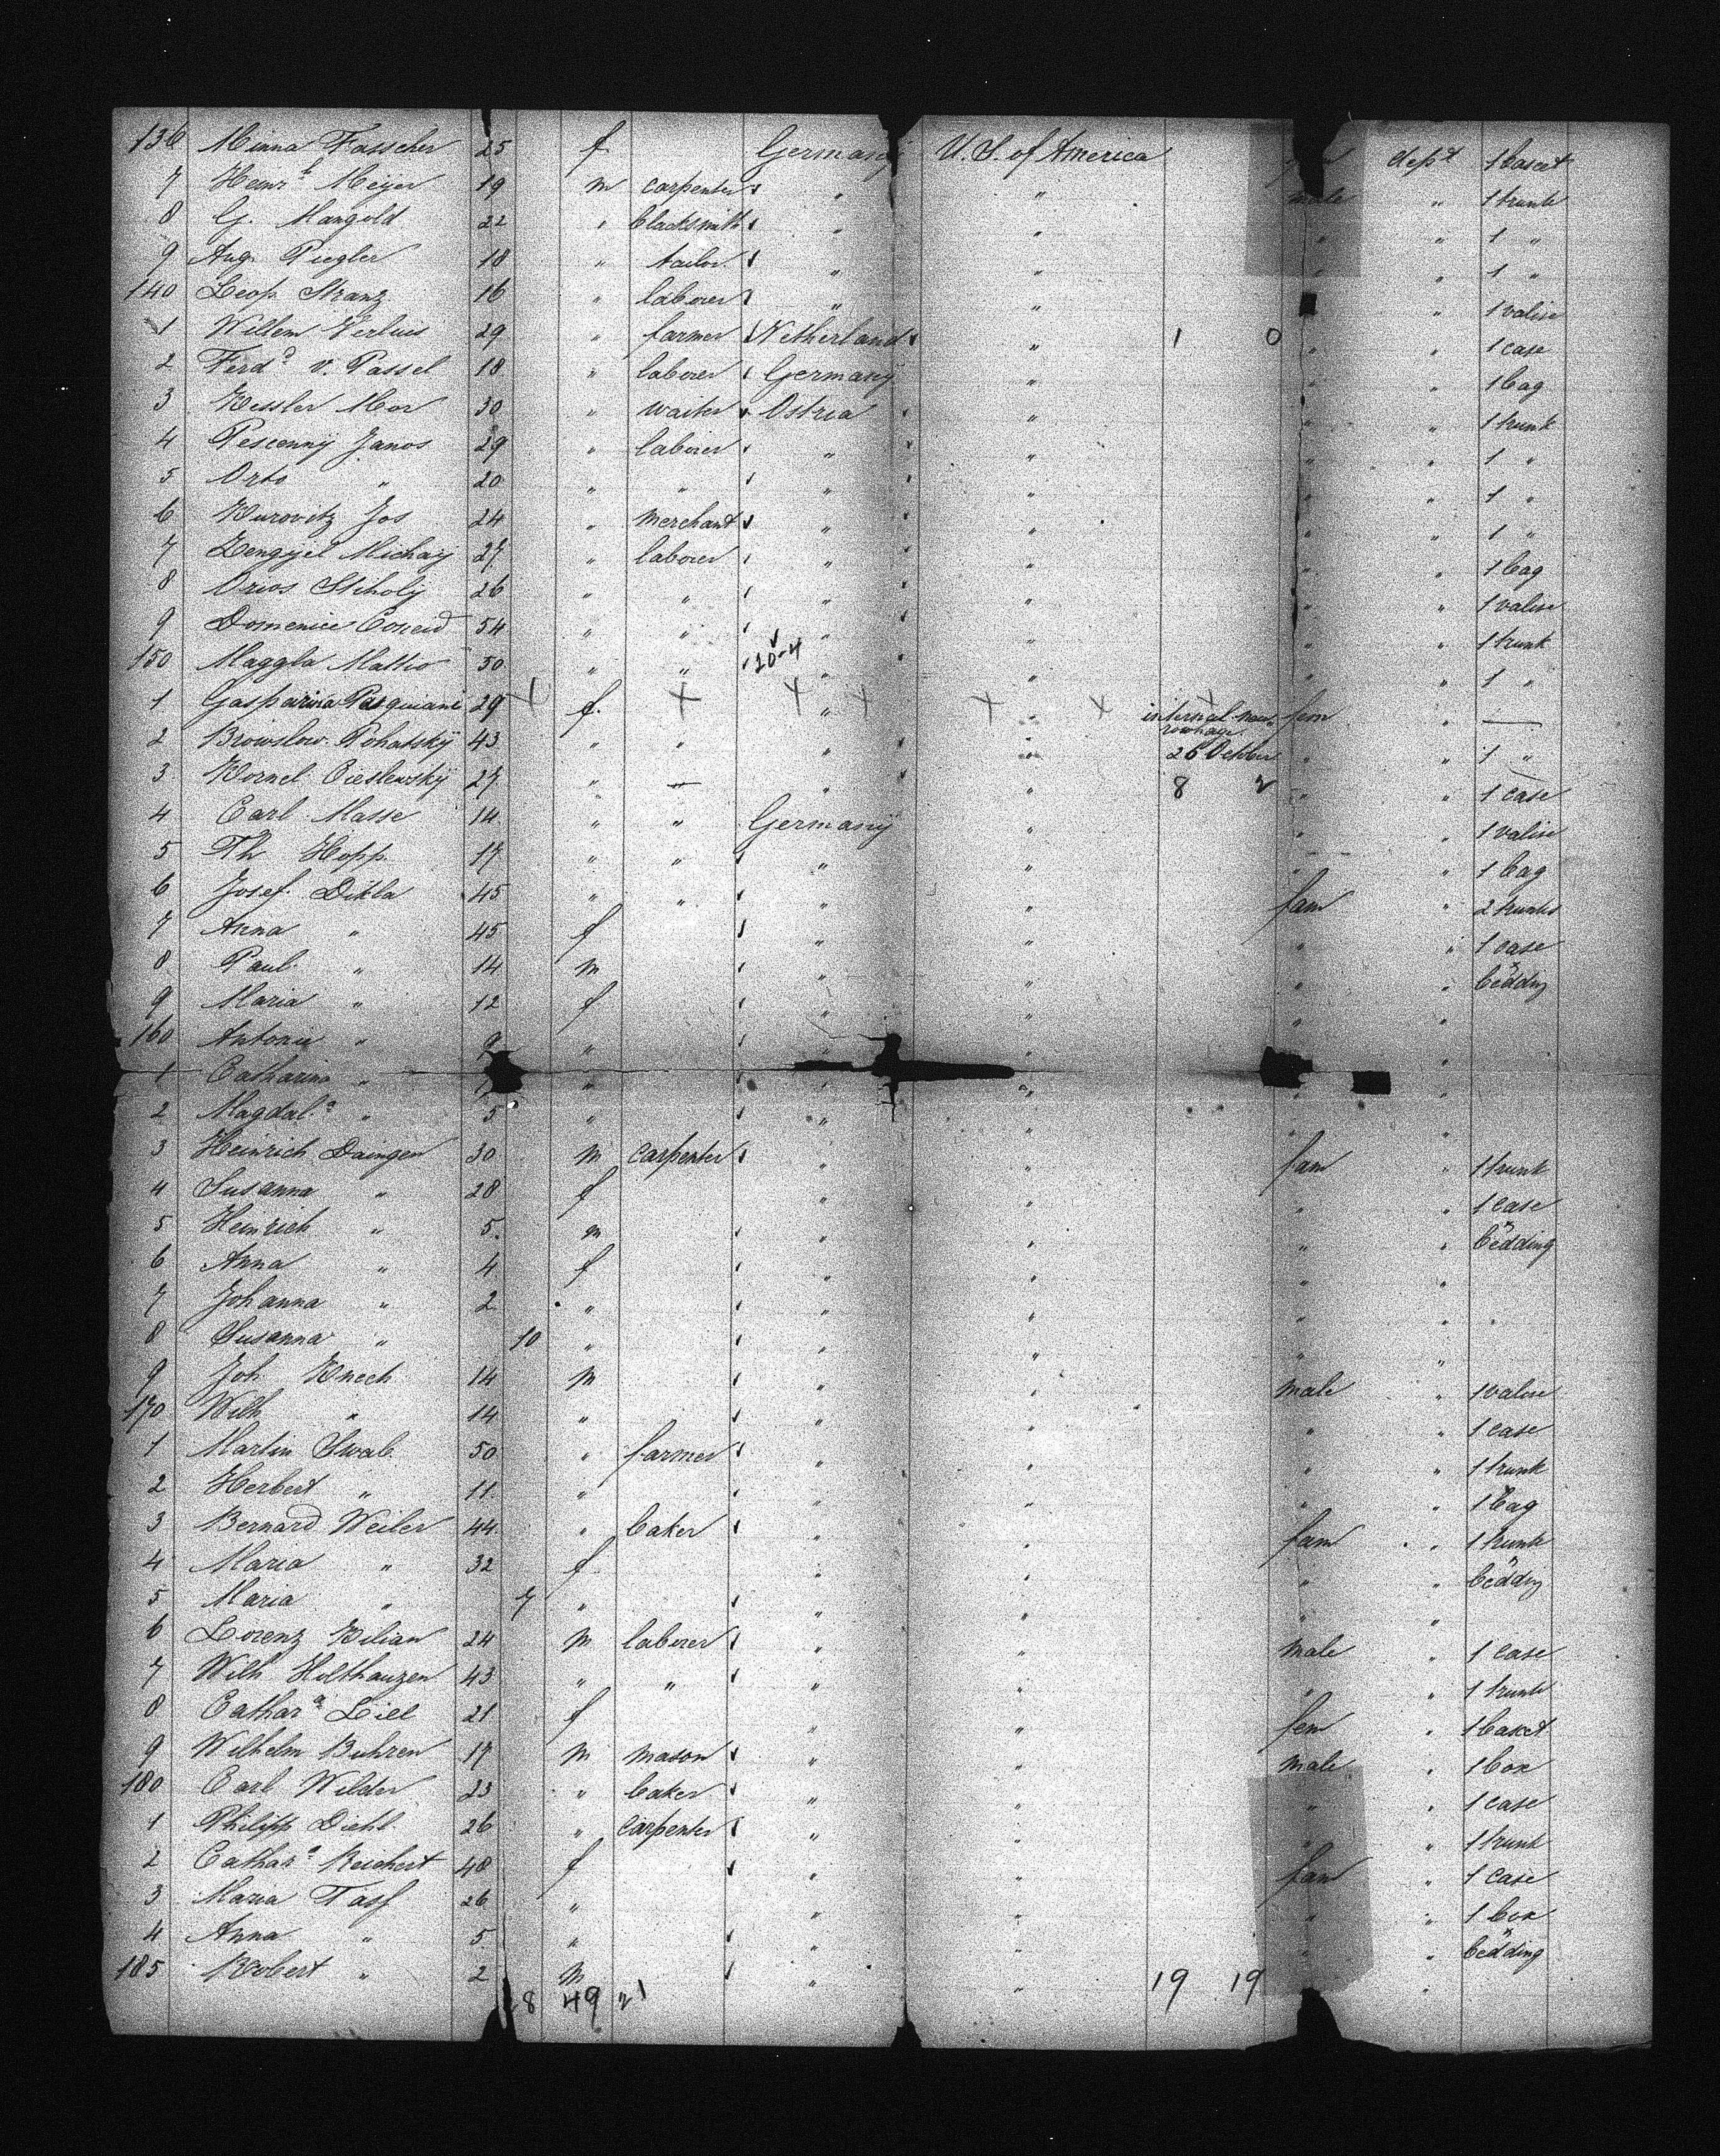 136 Minna Fasscher 25 f Germany U. S. of America fem dept 1 basket
7 Heinrh Meijer 19 m carpenter " " male " 1 trunk
8 G. Mangold 22 " blacksmith " " " " 1 "
9 Aug. Piegler 18 " tailor " " " " 1 "
140 Leop. Stranz 16 " laborer " " " 1 valise
1 Willem Verluis 29 " farmer Netherland " 1 0 " " 1 case
2 Ferdd v. Passel 18 " laborer Germany " " " 1 bag
3 Kessler Mor 30 " waiter Ostria " " " 1 trunk
4 Pescennij Janos 29 " laborer " " " " 1 "
5 Orto " 20 " " " " " " 1 "
6 Kurovitz Jos 24 " merchant " " " " 1 "
7 Lengijel Michaij 27 " laborer " " " " 1 bag
8 Orios Stiholij 26 " " " " " " 1 valise
9 Domenice 54 " " " " " " 1 trunk
150 Maggla Matteo 50 " " 20-4 " " " " 1 "
1 Gasparina Pasquiani 29 X f. X X " X X " X X internal
 fem " —
2 Browslow. Pohatskÿ 43 " " " " 26 October " " 1 "
3 Kornel Cieslewskÿ 27 " — " " 8 2 " " 1 case
4 Carl Masse 14 " " Germanÿ " " " 1 valise
5 Th Hopp 17 " " " " " " 1 bag
6 Josef Dikla 45 " " " " fam " 2 trunks
7 Anna " 45 f " " " " 1 case
8 Paul " 14 m " " " " bedding
9 Maria " 12 f " " " "
160 Antonie " 9 " " " "
1 Catharina " " " " " "
2 Magdala " 5 " " " " "
3 Heinrich Daingen 30 m carpenter " " fam " 1 trunk
4 Susanna " 28 f " " " " 1 case
5 Heinrich " 5. m " " " " bedding
6 Anna " 4 f " " " "
7 Johanna " 2 " " " " "
8 Susanna " 10 " " " " "
9 Joh Knech 14 m " " male " 1 valise
170 Wilh " 14 " " " " " 1 case
1 Martin Swab. 50 " farmer " " " " 1 trunk
2 Herbert " 11 " " " " " 1 bag
3 Bernard Weiler 44 " baker " " fam " 1 trunk
4 Maria " 32 f " " " " bedding
5 Maria " 7 " " " " "
6 Lorenz Kilian 24 m laborer " " male " 1 case
7 Wilh Holthauzen 43 " " " " " " 1 trunk
8 Cathara Liel 21 f " " fem " 1 basket
9 Wilhelm Buhren 17 m mason " " male " 1 box
180 Carl Wilder 23 " baker " " " " 1 case
1 Philipp Diehl. 26 " carpenter " " " " 1 trunk
2 Cathara Reichert 48 f " " fam " 1 case
3 Maria Tasf 26 " " " " " 1 box
4 Anna " 5 " " " " " bedding
185 Robert " 2 m " " "
28 49 21 19 19